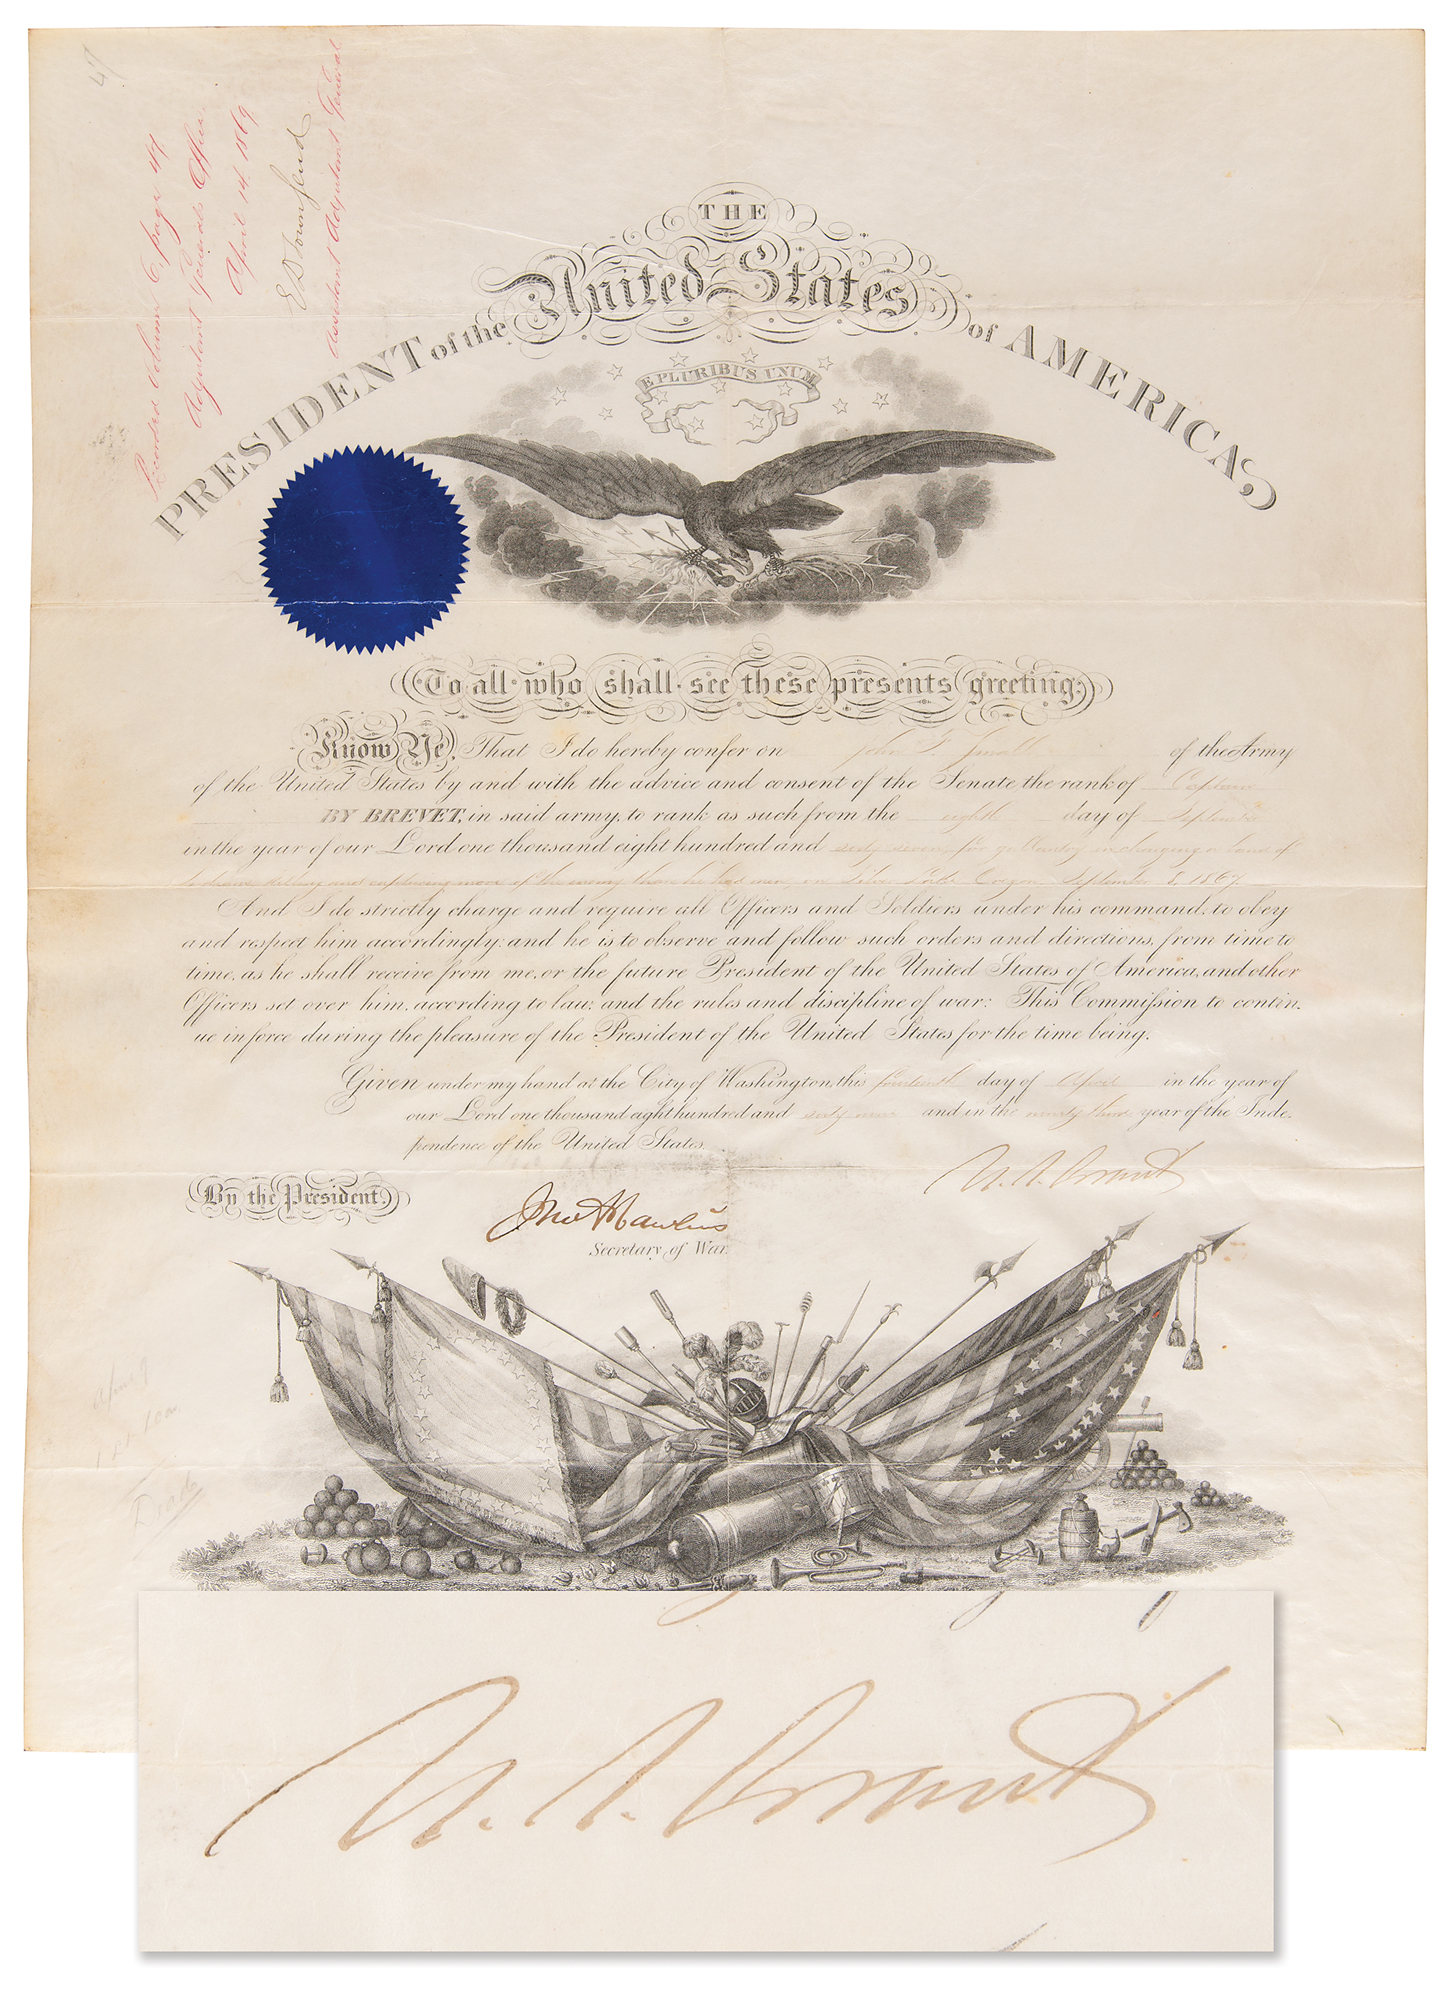 47
Recorded Volume 6, page 47
Adjutant General's Office
April 14. 1869
E D Townsend
Assistant Adjutant General
THE
PRESIDENT of the United States of AMERICA,
E PLURIBUS UNUM
To all who shall see these presents greeting:
Know Ye, That I do hereby confer on John F. Small of the Army
of the United States by and with the advice and consent of the Senate the rank of Captain
BY BREVET, in said army, to rank as such from the eighth day of September
in the year of our Lord one thousand eight hundred and sixty seven, for gallantry in charging a band of
Indians, killing and capturing more of the enemy than he had men, on Silver Lake Oregon September 8, 1867.
And I do strictly charge and require all Officers and Soldiers under his command, to obey
and respect him accordingly: and he is to observe and follow such orders and directions, from time to
time, as he shall receive from me, or the future President of the United States of America, and other
Officers set over him, according to law: and the rules and discipline of war: This Commission to contin-
ue in force during the pleasure of the President of the United States for the time being.
Given under my hand at the City of Washington, this fourteenth day of April in the year of
our Lord one thousand eight hundred and sixty nine and in the ninety third year of the Inde-
pendence of the United States.
U. S. Grant
By the President,
Jno A Rawlins
Secretary of War.
U. S. Grant